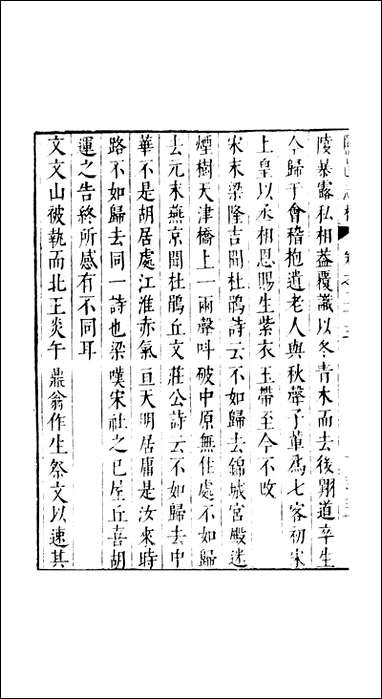 陵暴露私相葢覆識以冬青木而去後鄭道卒生
今歸于會稽抱遺老人與秋聲子輩爲七客初宋
上皇以丞相恩賜生紫衣玉帶至今不改
宋末梁隆吉聞杜鵑詩云不如歸去錦城宮殿迷
煙樹天津橋上一兩聲呌破中原無住處不如歸
去元末燕京聞杜鵑丘文莊公詩云不如歸去中
華不是胡居處江淮赤氣亘天明居庸是汝來時
路不如歸去同一詩也梁嘆宋社之已屋丘喜胡
運之告終所感有不同耳
文文山被執而北王炎午鼎翁作生祭文以速其